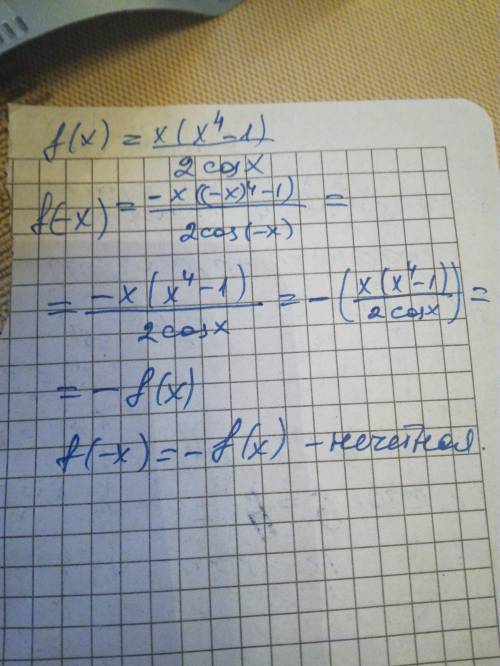 f(x) = x(x⁴-1)/2cosx
f(-x) = -x((-x)⁴-1)/2cos(-x) =
= -x(x⁴-1)/2cosx = -(x(x⁴-1)/2cosx) =
= - f(x)
f(-x) = - f(x) - нечетная.